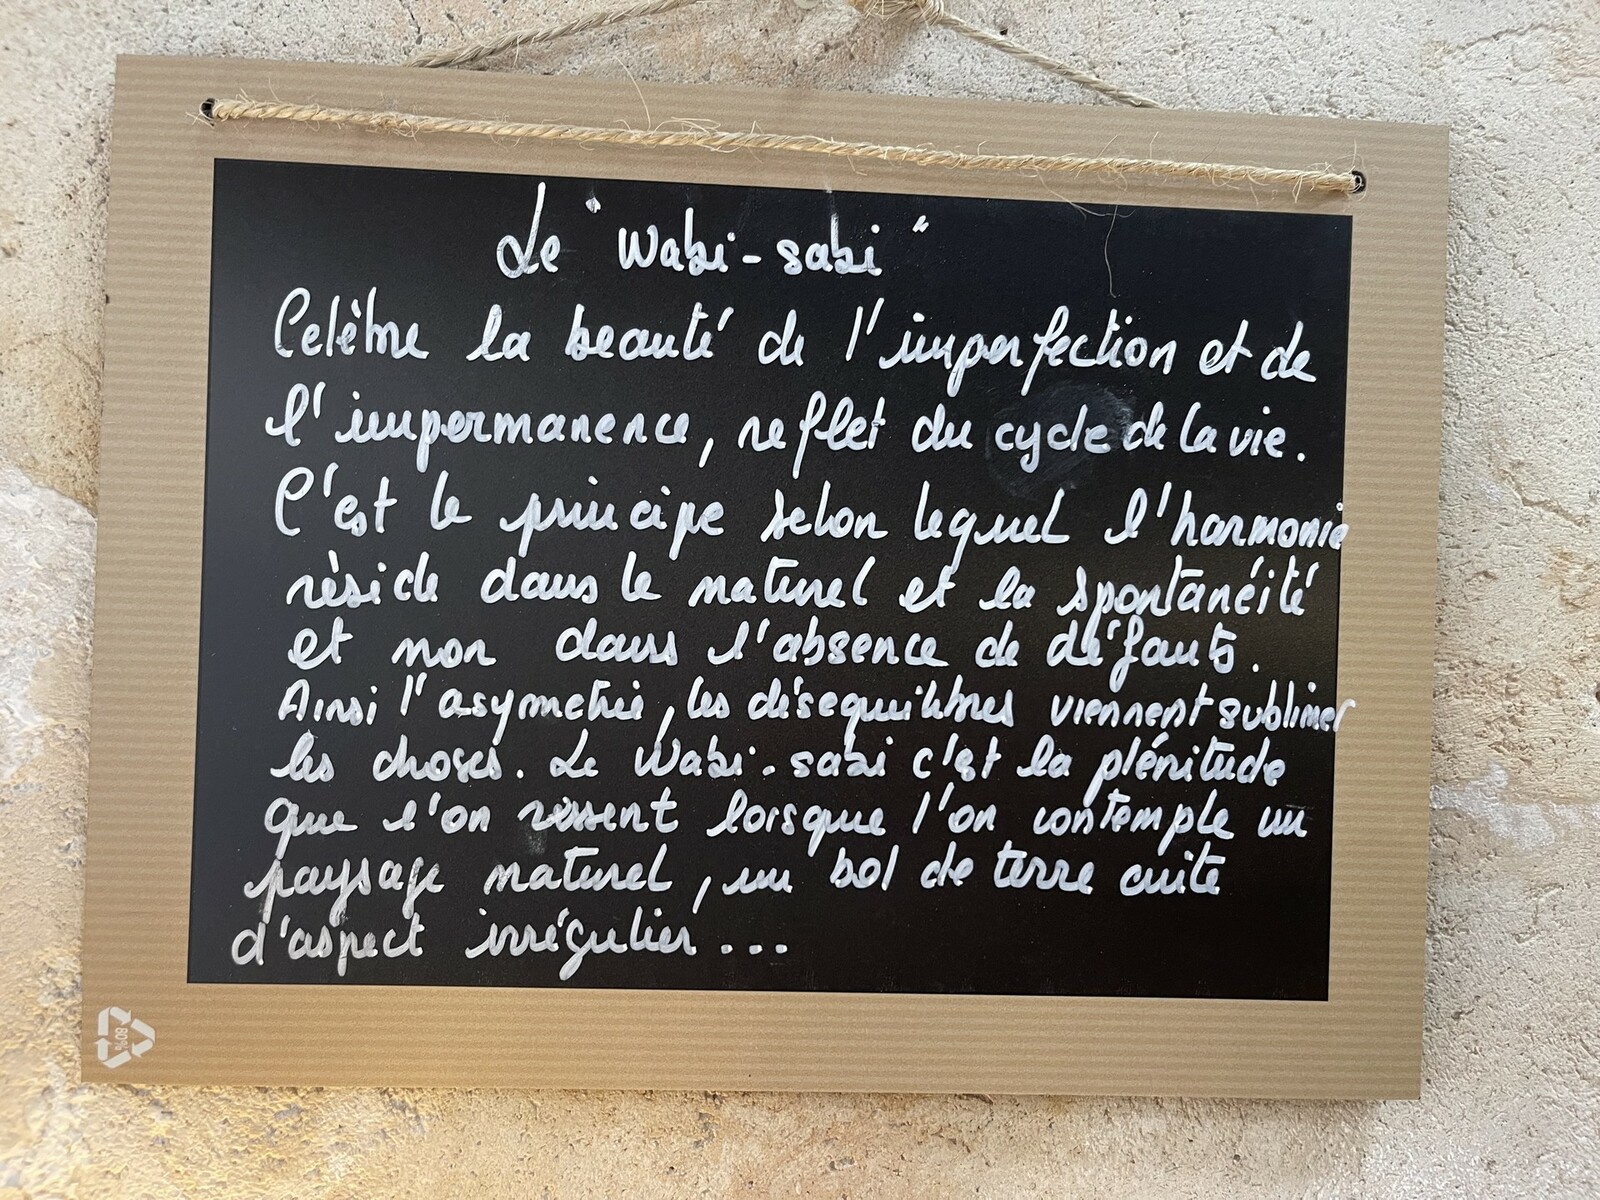 Le "Wabi-sabi"
Celèbre la beauté de l'imperfection et de
l'impermanence, reflet du cycle de la vie.
C'est le principe selon lequel l'harmonie
rèside dans le naturel et la spontanéité
et non dans l'absence de défauts.
Ainsi l'asymetrie, les désequilibres viennent sublimer
les choses. Le Wabi-sabi c'est la plénitude
que l'on ressent lorsque l'on contemple un
paysage naturel, un bol de terre cuite
d'aspect irrégulier...
80%